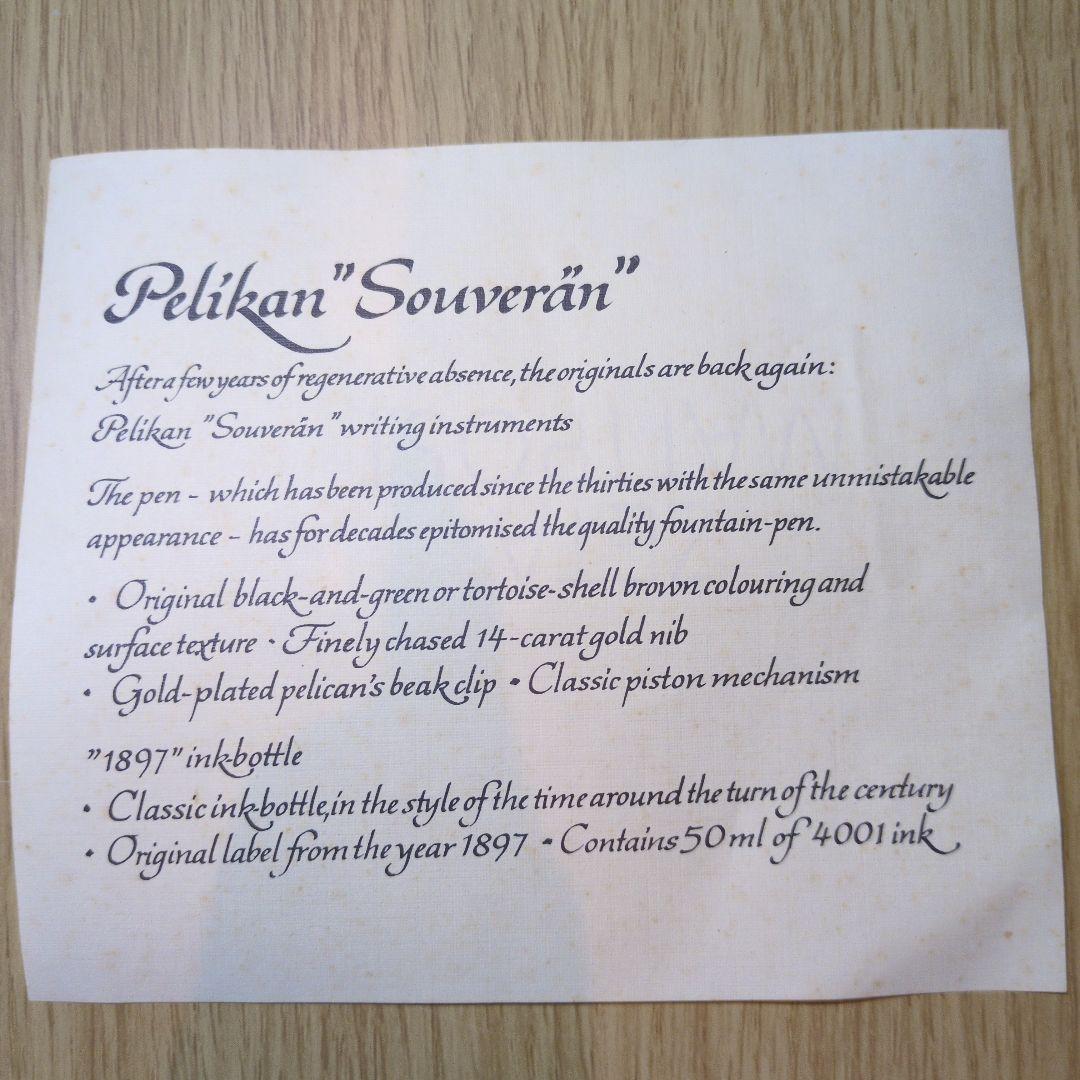 Pelikan "Souverän"
After a few years of regenerative absence, the originals are back again:
Pelikan "Souverän" writing instruments
The pen - which has been produced since the thirties with the same unmistakable
appearance - has for decades epitomised the quality fountain-pen.
• Original black-and-green or tortoise-shell brown colouring and
surface texture • Finely chased 14-carat gold nib
• Gold-plated pelican's beak clip • Classic piston mechanism
"1897" ink-bottle
• Classic ink-bottle, in the style of the time around the turn of the century
• Original label from the year 1897 • Contains 50 ml of 4001 ink